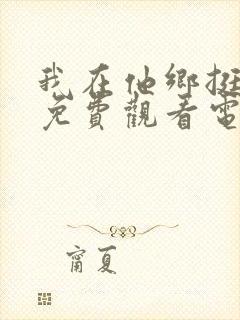 我在他鄉挺
免費觀看電
甯夏